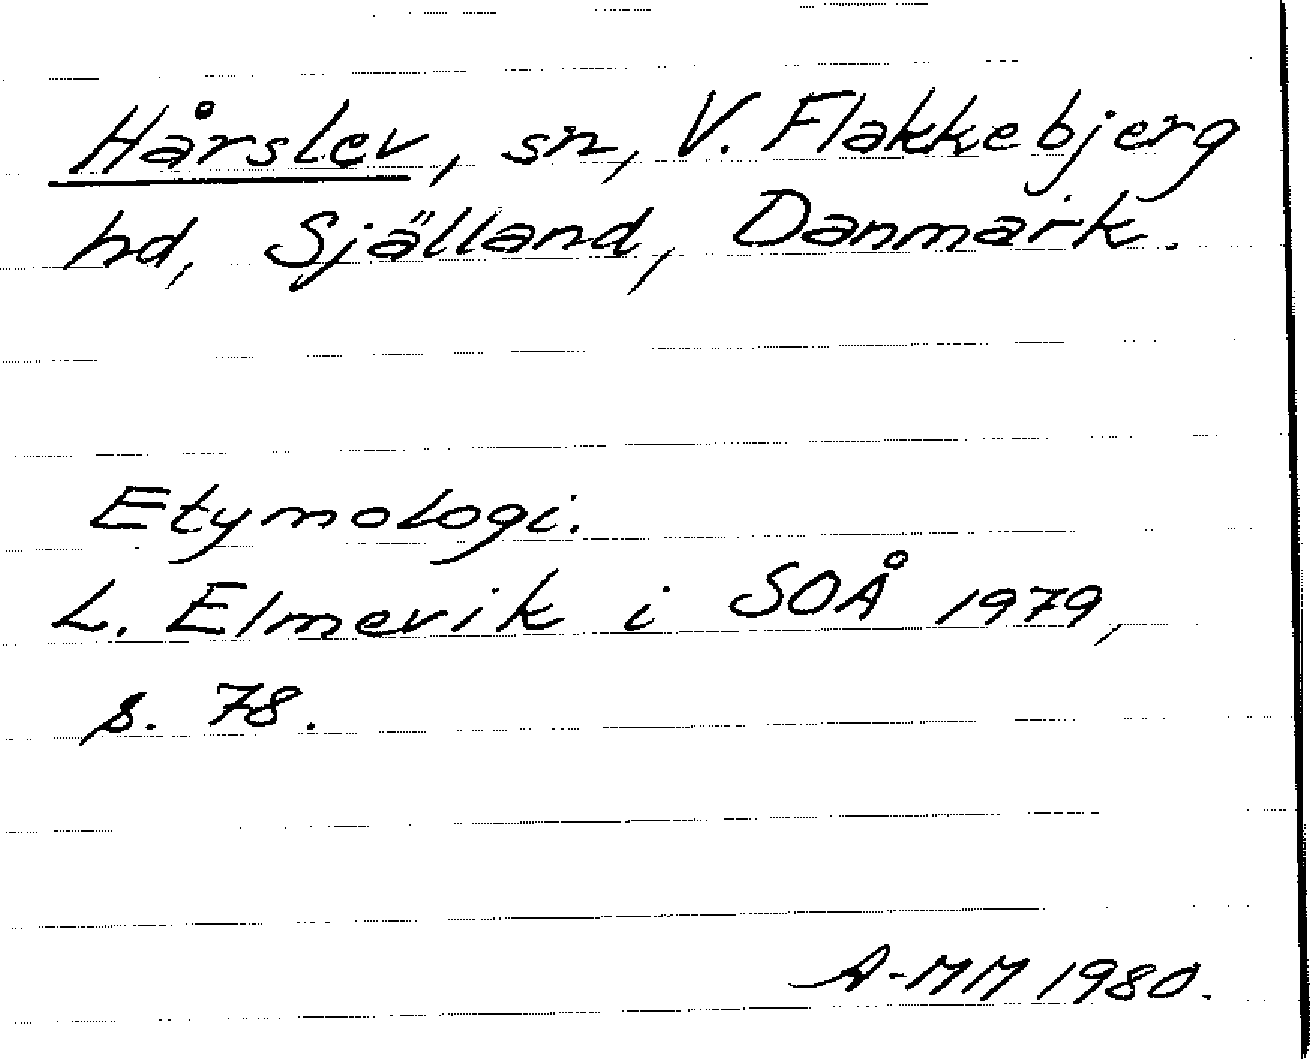 Hårslev, sn, V. Flakkebjerg
hd, Själland, Danmark.
Etymologi.
L. Elmevik i SOÅ 1979,
s. 78.
A-MM 1980.